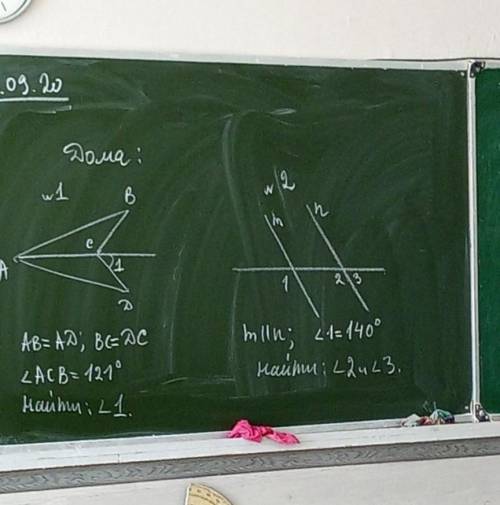 .09.20
Дома:
№1
B
C
A
1
D
AB=AD; BC=DC
∠ACB=121°
Найти: ∠1.
№2
m
n
1
2
3
m||n; ∠1=140°
Найти: ∠2 и ∠3.